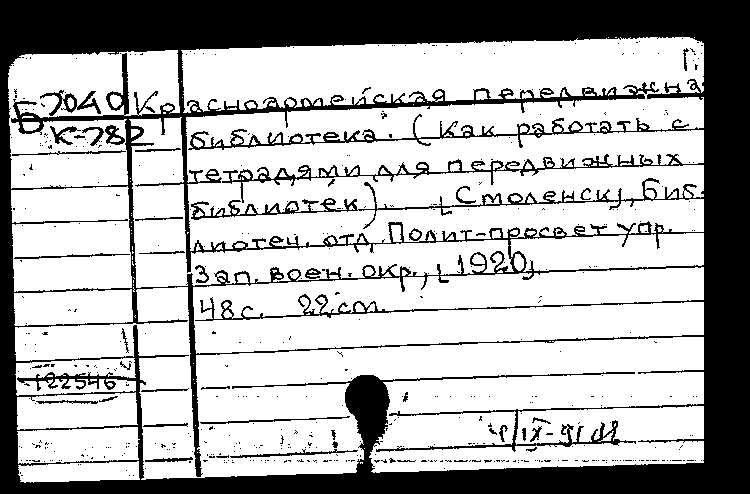 Б 7040 Красноармейская передвижна
К-782 библиотека. (Как работать с
тетрадями для передвижных
библиотек). [Смоленск], Биб-
лиотеч. отд. Полит-просвет упр.
Зап. воен. окр., [1920].
48 с. 22 cm.
122546